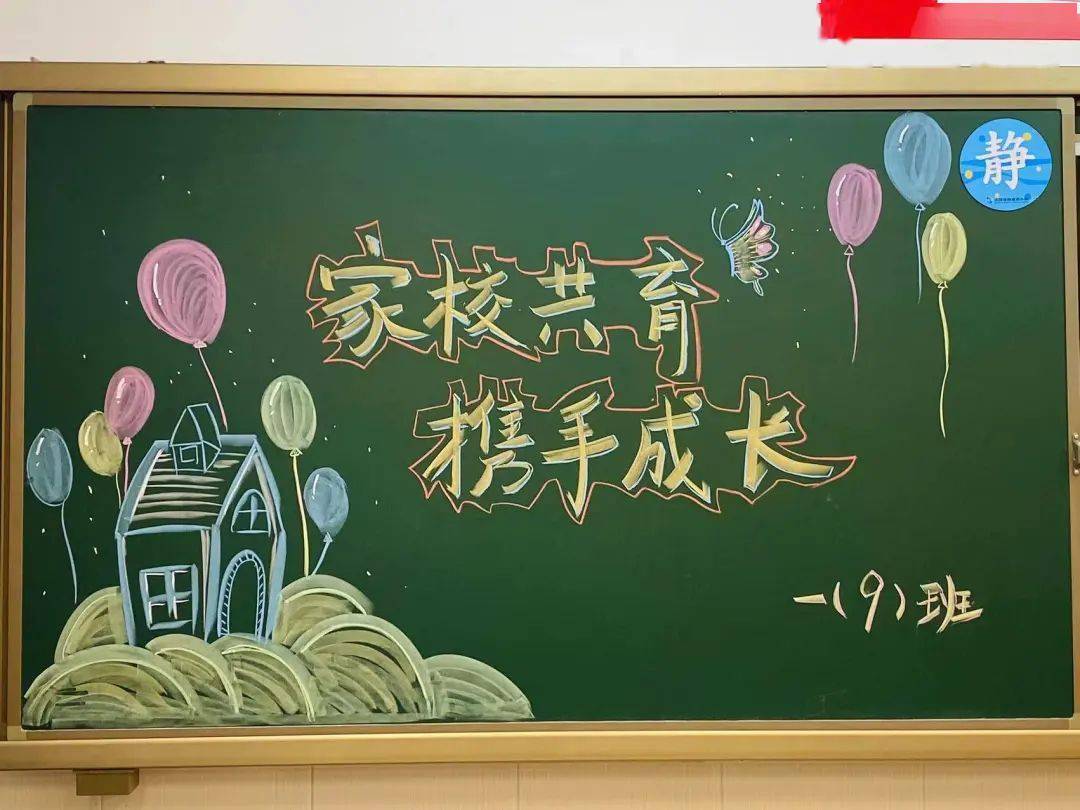 静
家校共育
携手成长
一(9)班